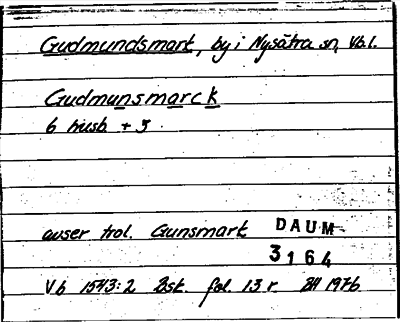 Gudmundsmark, by i Nysätra sn, Vb.l.
Gudmunsmarck
6 husb. + 3
avser trol. Gunsmark
DAUM
3164
Vb 1543:2 Bsk. fol. 13 r. BH 1976